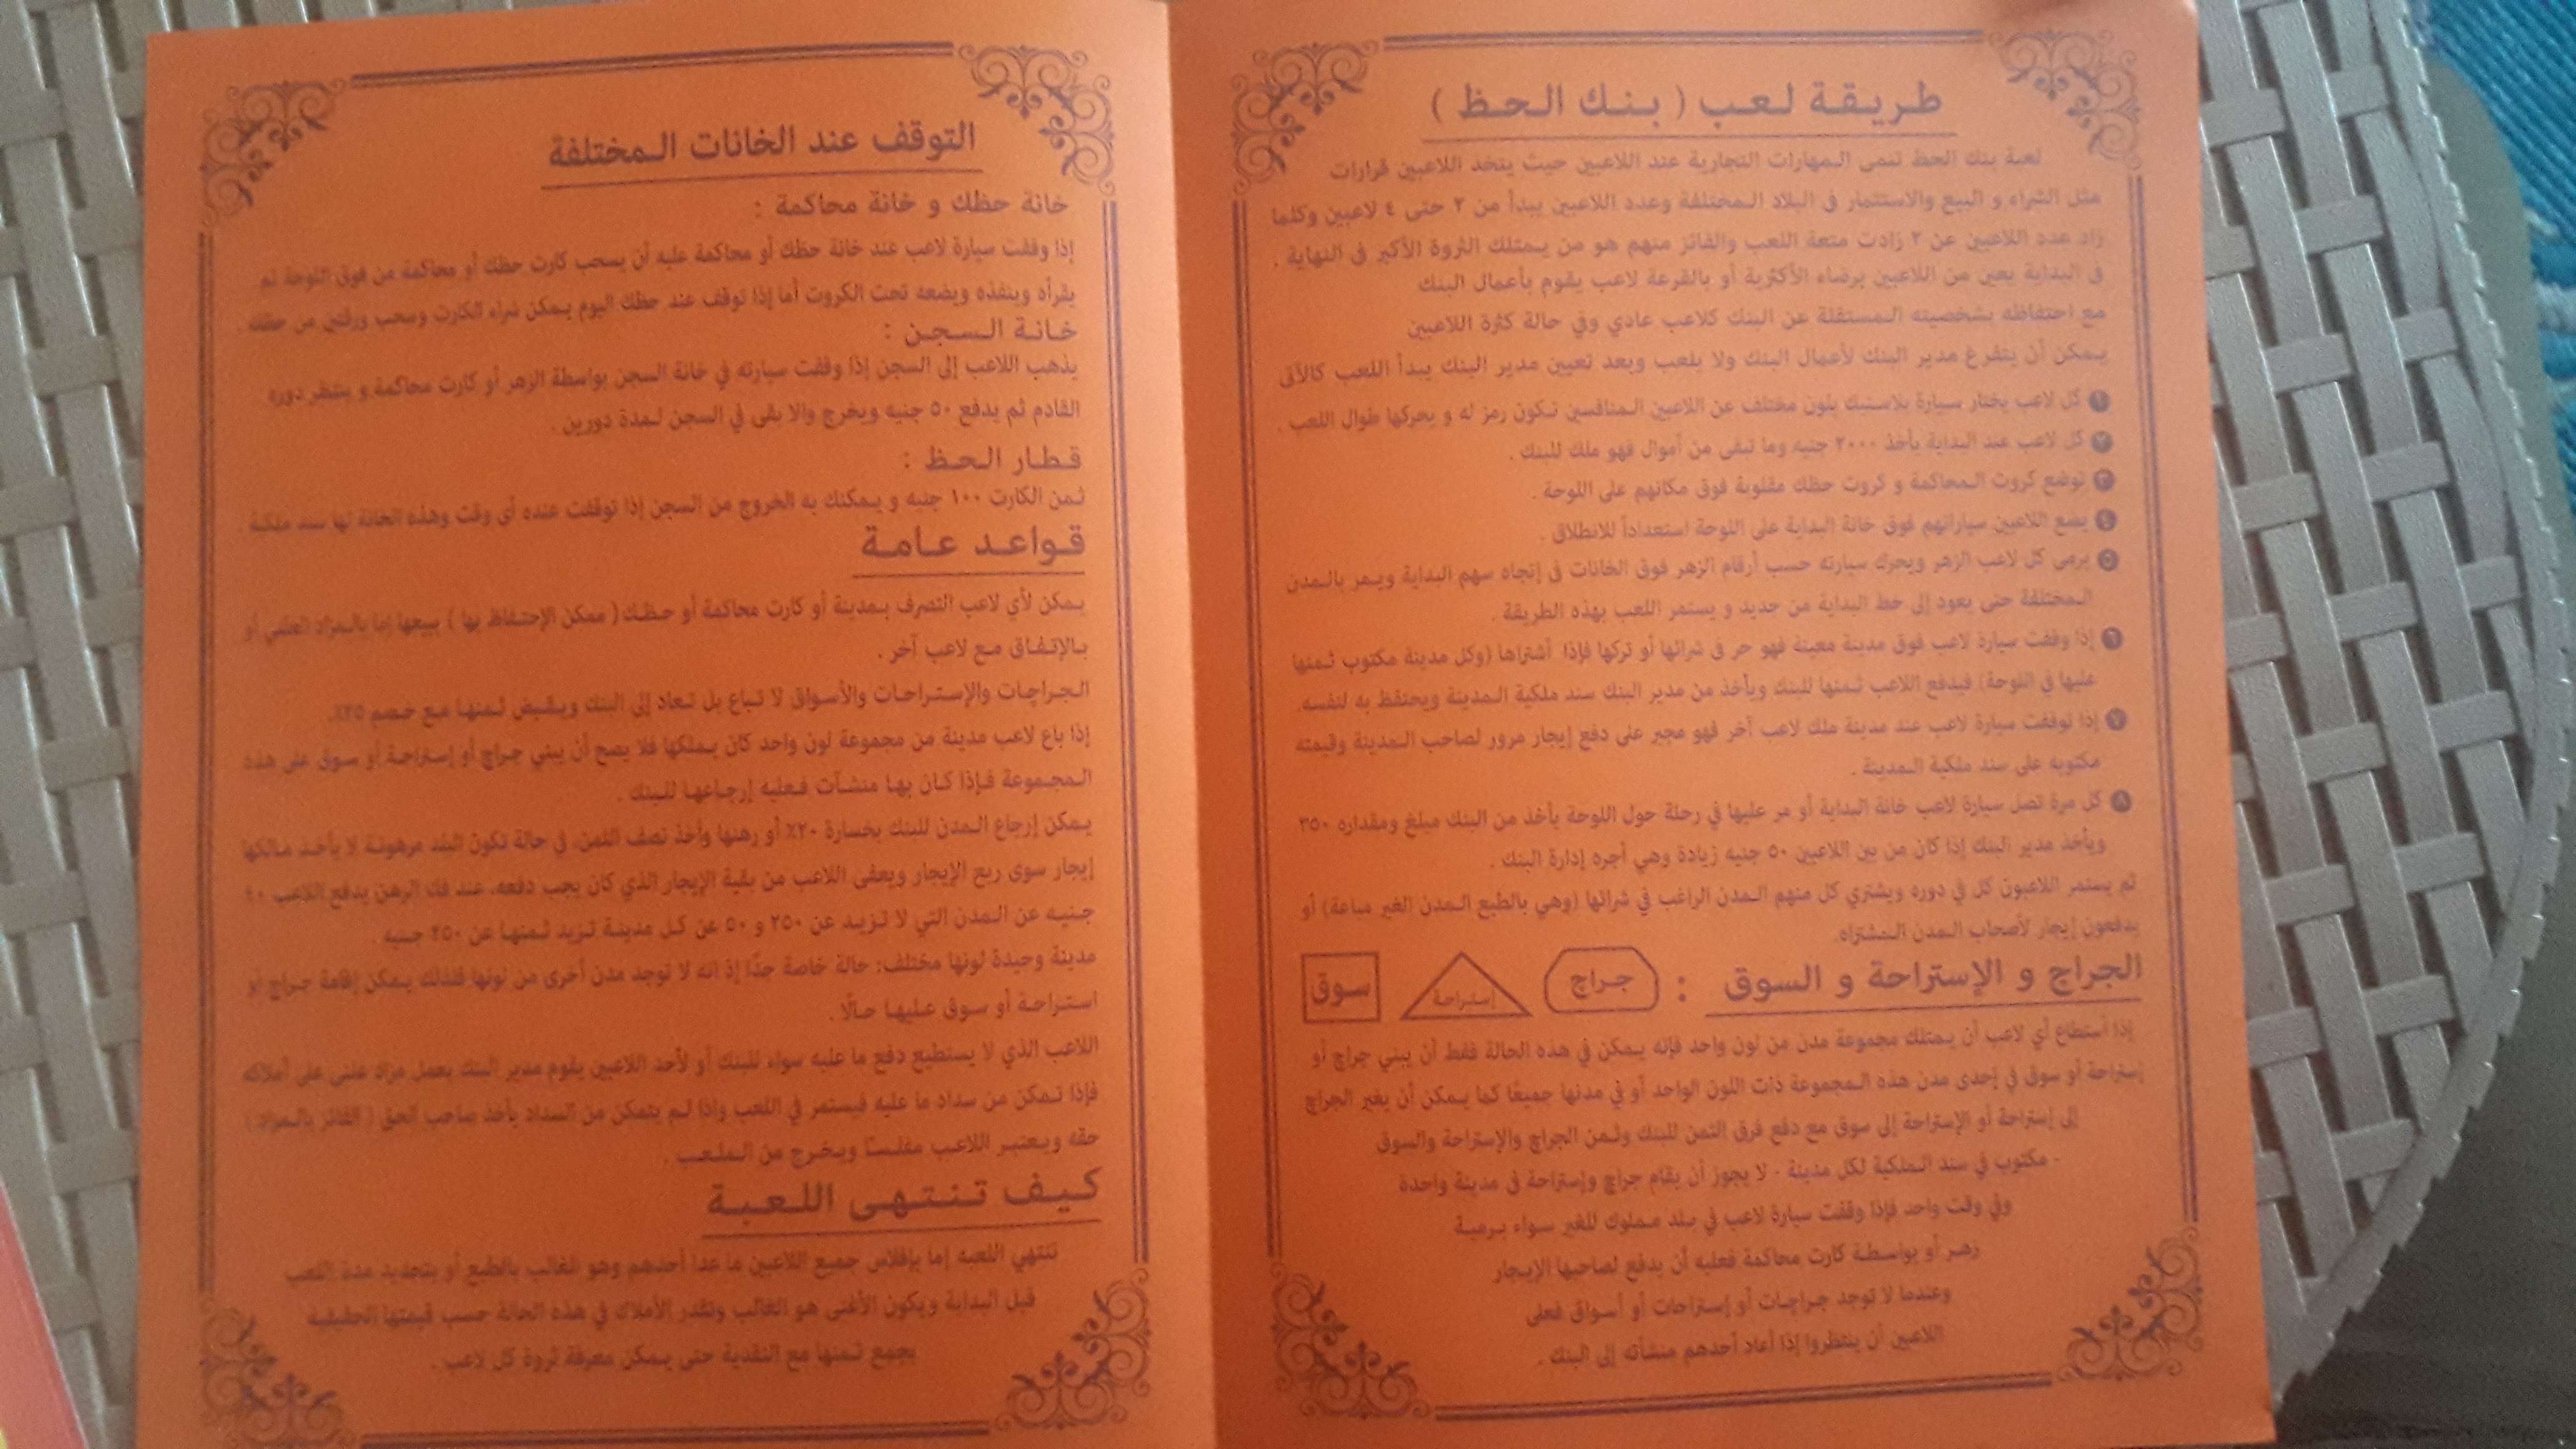 طريقة لعب ( بنك الحظ )
لعبة بنك الحظ تنمى المهارات التجارية عند اللاعبين حيث يتخذ اللاعبين قرارات
مثل الشراء و البيع والاستثمار فى البلاد المختلفة وعدد اللاعبين يبدأ من ٢ حتى ٤ لاعبين وكلما
زاد عدد اللاعبين عن ٢ زادت متعة اللعب والفائز منهم هو من يمتلك الثروة الأكبر فى النهاية .
فى البداية يعين من اللاعبين برضاء الأكثرية أو بالقرعة لاعب يقوم بأعمال البنك
مع احتفاظه بشخصيته المستقلة عن البنك كلاعب عادي وفي حالة كثرة اللاعبين
يمكن أن يتفرغ مدير البنك لأعمال البنك ولا يلعب وبعد تعيين مدير البنك يبدأ اللعب كالآتى
١ كل لاعب يختار سيارة بلاستيك بلون مختلف عن اللاعبين المنافسين تكون رمز له و يحركها طوال اللعب .
٢ كل لاعب عند البداية يأخذ ٢٠٠٠ جنيه وما تبقى من أموال فهو ملك للبنك .
٣ توضع كروت المحاكمة و كروت حظك مقلوبة فوق مكانهم على اللوحة .
٤ يضع اللاعبين سياراتهم فوق خانة البداية على اللوحة استعداداً للانطلاق .
٥ يرمى كل لاعب الزهر ويحرك سيارته حسب أرقام الزهر فوق الخانات فى إتجاه سهم البداية ويمر بالمدن
المختلفة حتى يعود إلى خط البداية من جديد و يستمر اللعب بهذه الطريقة .
٦ إذا وقفت سيارة لاعب فوق مدينة معينة فهو حر فى شرائها أو تركها فإذا أشتراها (وكل مدينة مكتوب ثمنها
عليها فى اللوحة) فيدفع اللاعب ثمنها للبنك ويأخذ من مدير البنك سند ملكية المدينة ويحتفظ به لنفسه.
٧ إذا توقفت سيارة لاعب عند مدينة ملك لاعب آخر فهو مجبر على دفع إيجار مرور لصاحب المدينة وقيمته
مكتوبه على سند ملكية المدينة .
٨ كل مرة تصل سيارة لاعب خانة البداية أو مر عليها في رحلة حول اللوحة يأخذ من البنك مبلغ ومقداره ٣٥٠
ويأخذ مدير البنك إذا كان من بين اللاعبين ٥٠ جنيه زيادة وهي أجره إدارة البنك .
ثم يستمر اللاعبون كل في دوره ويشتري كل منهم المدن الراغب في شرائها (وهي بالطبع المدن الغير مباعة) أو
يدفعون إيجار لأصحاب المدن المشتراه.
الجراج و الإستراحة و السوق : جراج إستراحة سوق
إذا أستطاع أي لاعب أن يمتلك مجموعة مدن من لون واحد فإنه يمكن في هذه الحالة فقط أن يبني جراج أو
إستراحة أو سوق في إحدى مدن هذه المجموعة ذات اللون الواحد أو في مدنها جميعًا كما يمكن أن يغير الجراج
إلى إستراحة أو الإستراحة إلى سوق مع دفع فرق الثمن للبنك وثمن الجراج والإستراحة والسوق
- مكتوب في سند الملكية لكل مدينة - لا يجوز أن يقام جراج وإستراحة في مدينة واحدة
وفي وقت واحد فإذا وقفت سيارة لاعب في بلد مملوك للغير سواء برمية
زهر أو بواسطة كارت محاكمة فعليه أن يدفع لصاحبها الإيجار
وعندما لا توجد جراجات أو إستراحات أو أسواق فعلى
اللاعبين أن ينتظروا إذا أعاد أحدهم منشأته إلى البنك .
التوقف عند الخانات المختلفة
خانة حظك و خانة محاكمة :
إذا وقفت سيارة لاعب عند خانة حظك أو محاكمة عليه أن يسحب كارت حظك أو محاكمة من فوق اللوحة ثم
يقرأه وينفذه ويضعه تحت الكروت أما إذا توقف عند حظك اليوم يمكن شراء الكارت وسحب ورقتين من حظك .
خانة السجن :
يذهب اللاعب إلى السجن إذا وقفت سيارته في خانة السجن بواسطة الزهر أو كارت محاكمة و ينتظر دوره
القادم ثم يدفع ٥٠ جنيه ويخرج والا بقى في السجن لمدة دورين .
قطار الحظ :
ثمن الكارت ١٠٠ جنيه و يمكنك به الخروج من السجن إذا توقفت عنده أى وقت وهذه الخانة لها سند ملكية .
قواعد عامة
يمكن لأي لاعب التصرف بمدينة أو كارت محاكمة أو حظك ( ممكن الإحتفاظ بها ) ببيعها إما بالمزاد العلني أو
بالإتفاق مع لاعب آخر .
الجراجات والإستراحات والأسواق لا تباع بل تعاد إلى البنك ويقبض ثمنها مع خصم ٢٥٪.
إذا باع لاعب مدينة من مجموعة لون واحد كان يملكها فلا يصح أن يبني جراج أو إستراحة أو سوق على هذه
المجموعة فإذا كان بها منشآت فعليه إرجاعها للبنك .
يمكن إرجاع المدن للبنك بخسارة ٢٠٪ أو رهنها وأخذ نصف الثمن، في حالة تكون البلد مرهونة لا يأخذ مالكها
إيجار سوى ربع الإيجار ويعفى اللاعب من بقية الإيجار الذي كان يجب دفعه، عند فك الرهن يدفع اللاعب ٤٠
جنيه عن المدن التي لا تزيد عن ٢٥٠ و ٥٠ عن كل مدينة تزيد ثمنها عن ٢٥٠ جنيه .
مدينة وحيدة لونها مختلف: حالة خاصة جدًا إذ انه لا توجد مدن أخرى من لونها فلذلك يمكن إقامة جراج أو
استراحة أو سوق عليها حالًا .
اللاعب الذي لا يستطيع دفع ما عليه سواء للبنك أو لأحد اللاعبين يقوم مدير البنك بعمل مزاد علنى على أملاكه
فإذا تمكن من سداد ما عليه فيستمر في اللعب واذا لم يتمكن من السداد يأخذ صاحب الحق ( الفائز بالمزاد )
حقه ويعتبر اللاعب مفلسًا ويخرج من الملعب .
كيف تنتهى اللعبة
تنتهي اللعبه إما بإفلاس جميع اللاعبين ما عدا أحدهم وهو الغالب بالطبع أو بتحديد مدة اللعب
قبل البداية ويكون الأغنى هو الغالب وتقدر الأملاك في هذه الحالة حسب قيمتها الحقيقية
بجمع ثمنها مع النقدية حتى يمكن معرفة ثروة كل لاعب .